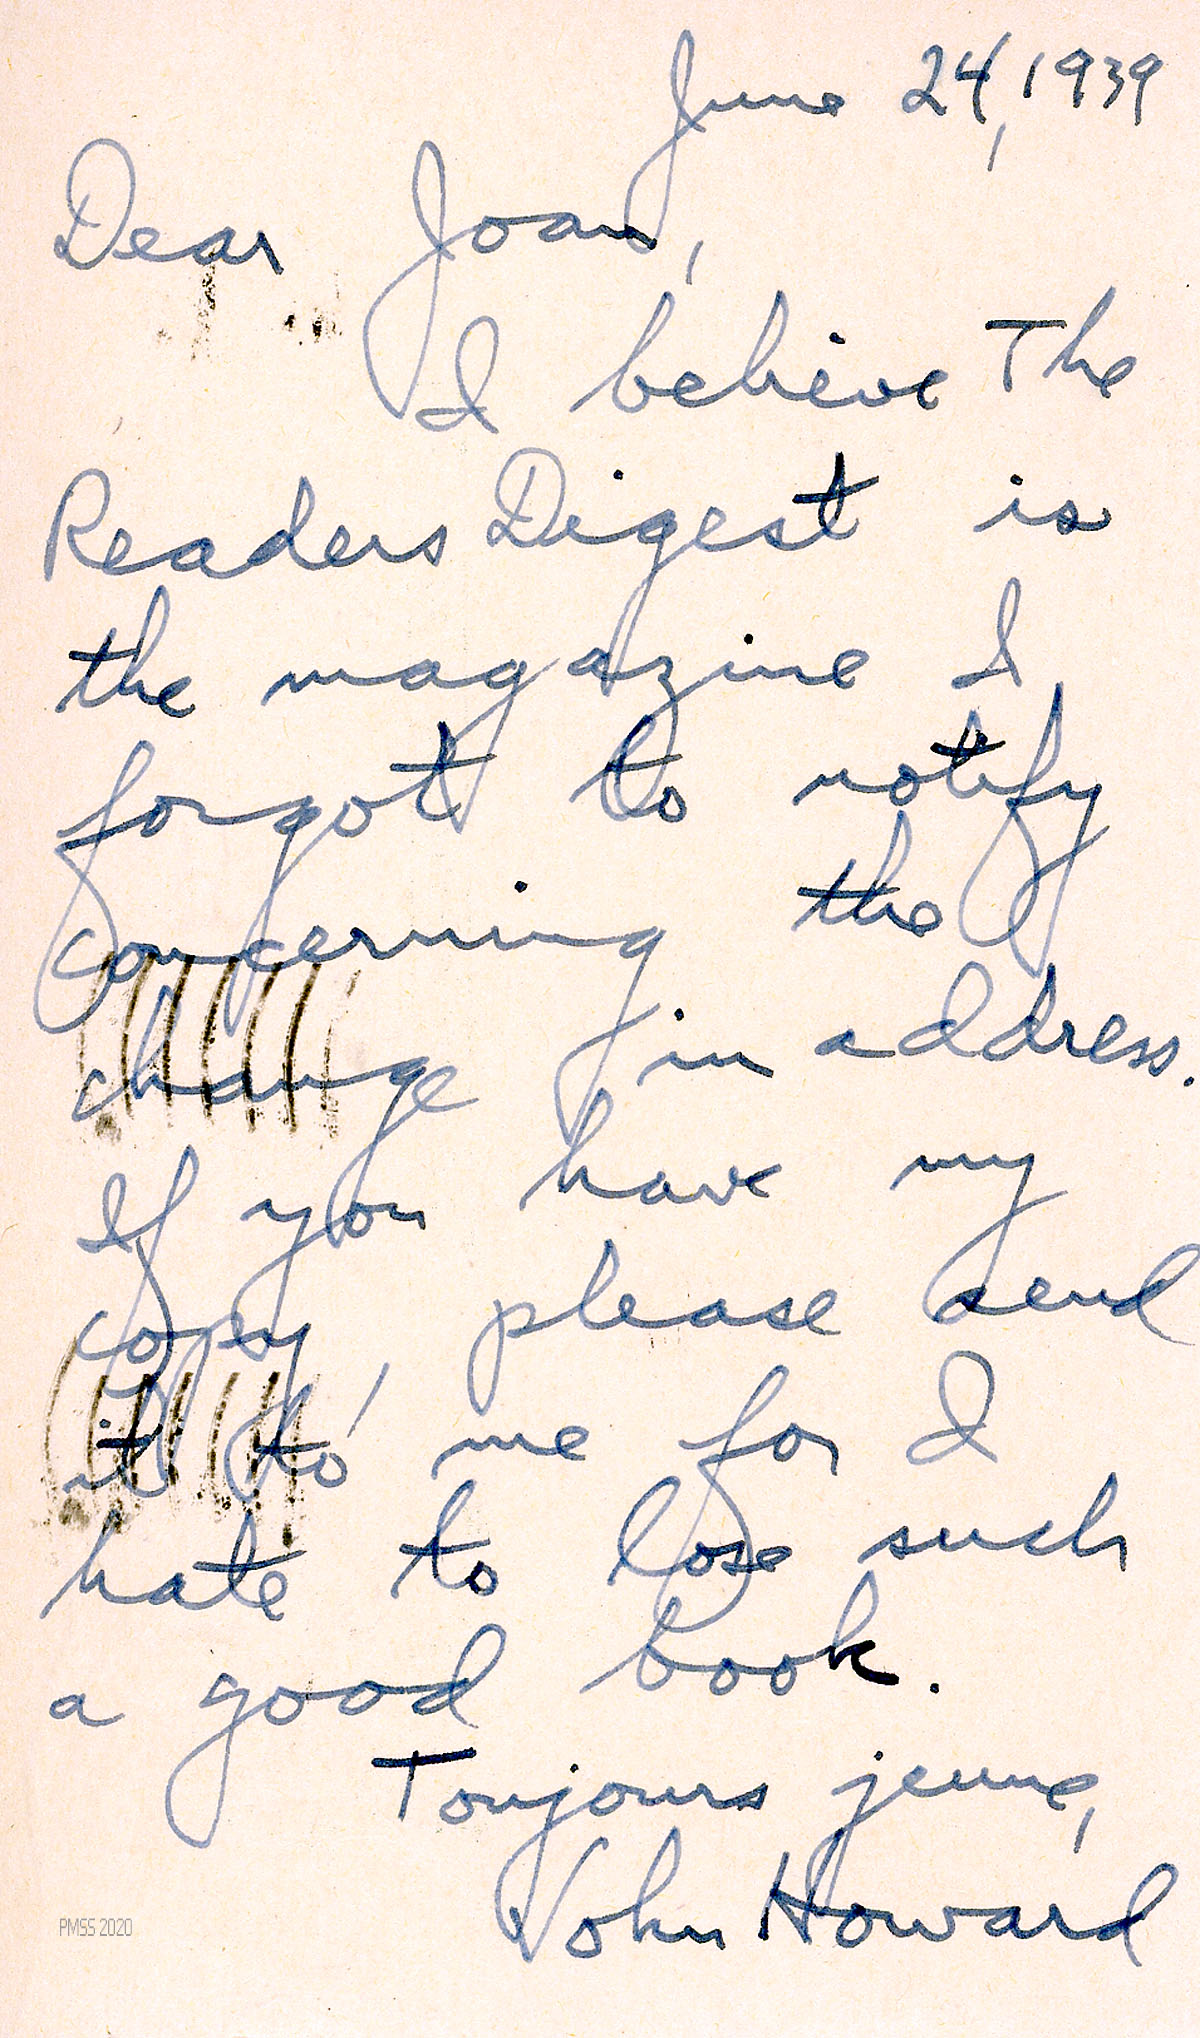 June 24, 1939
Dear Joan,
I believe The
Readers Digest is
the magazine I
forgot to notify
concerning the
change in address.
If you have my
copy, please send
it to me for I
hate to lose such
a good book.
Toujours jeune,
John Howard
PMSS 2020